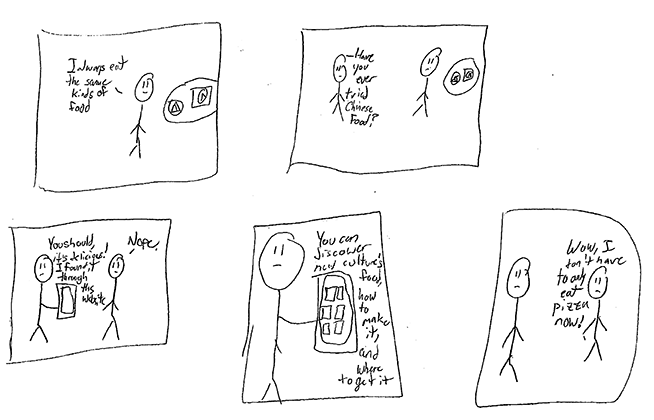 I always eat
the same
kinds of
food
Have
you
ever
tried
Chinese
Food?
You should,
it's delicious!
I found it
through
this
website
Nope.
You can
discover
new culture's
food,
how
to
make
it,
and
where
to get it
Wow, I
don't have
to only
eat
pizza
now!